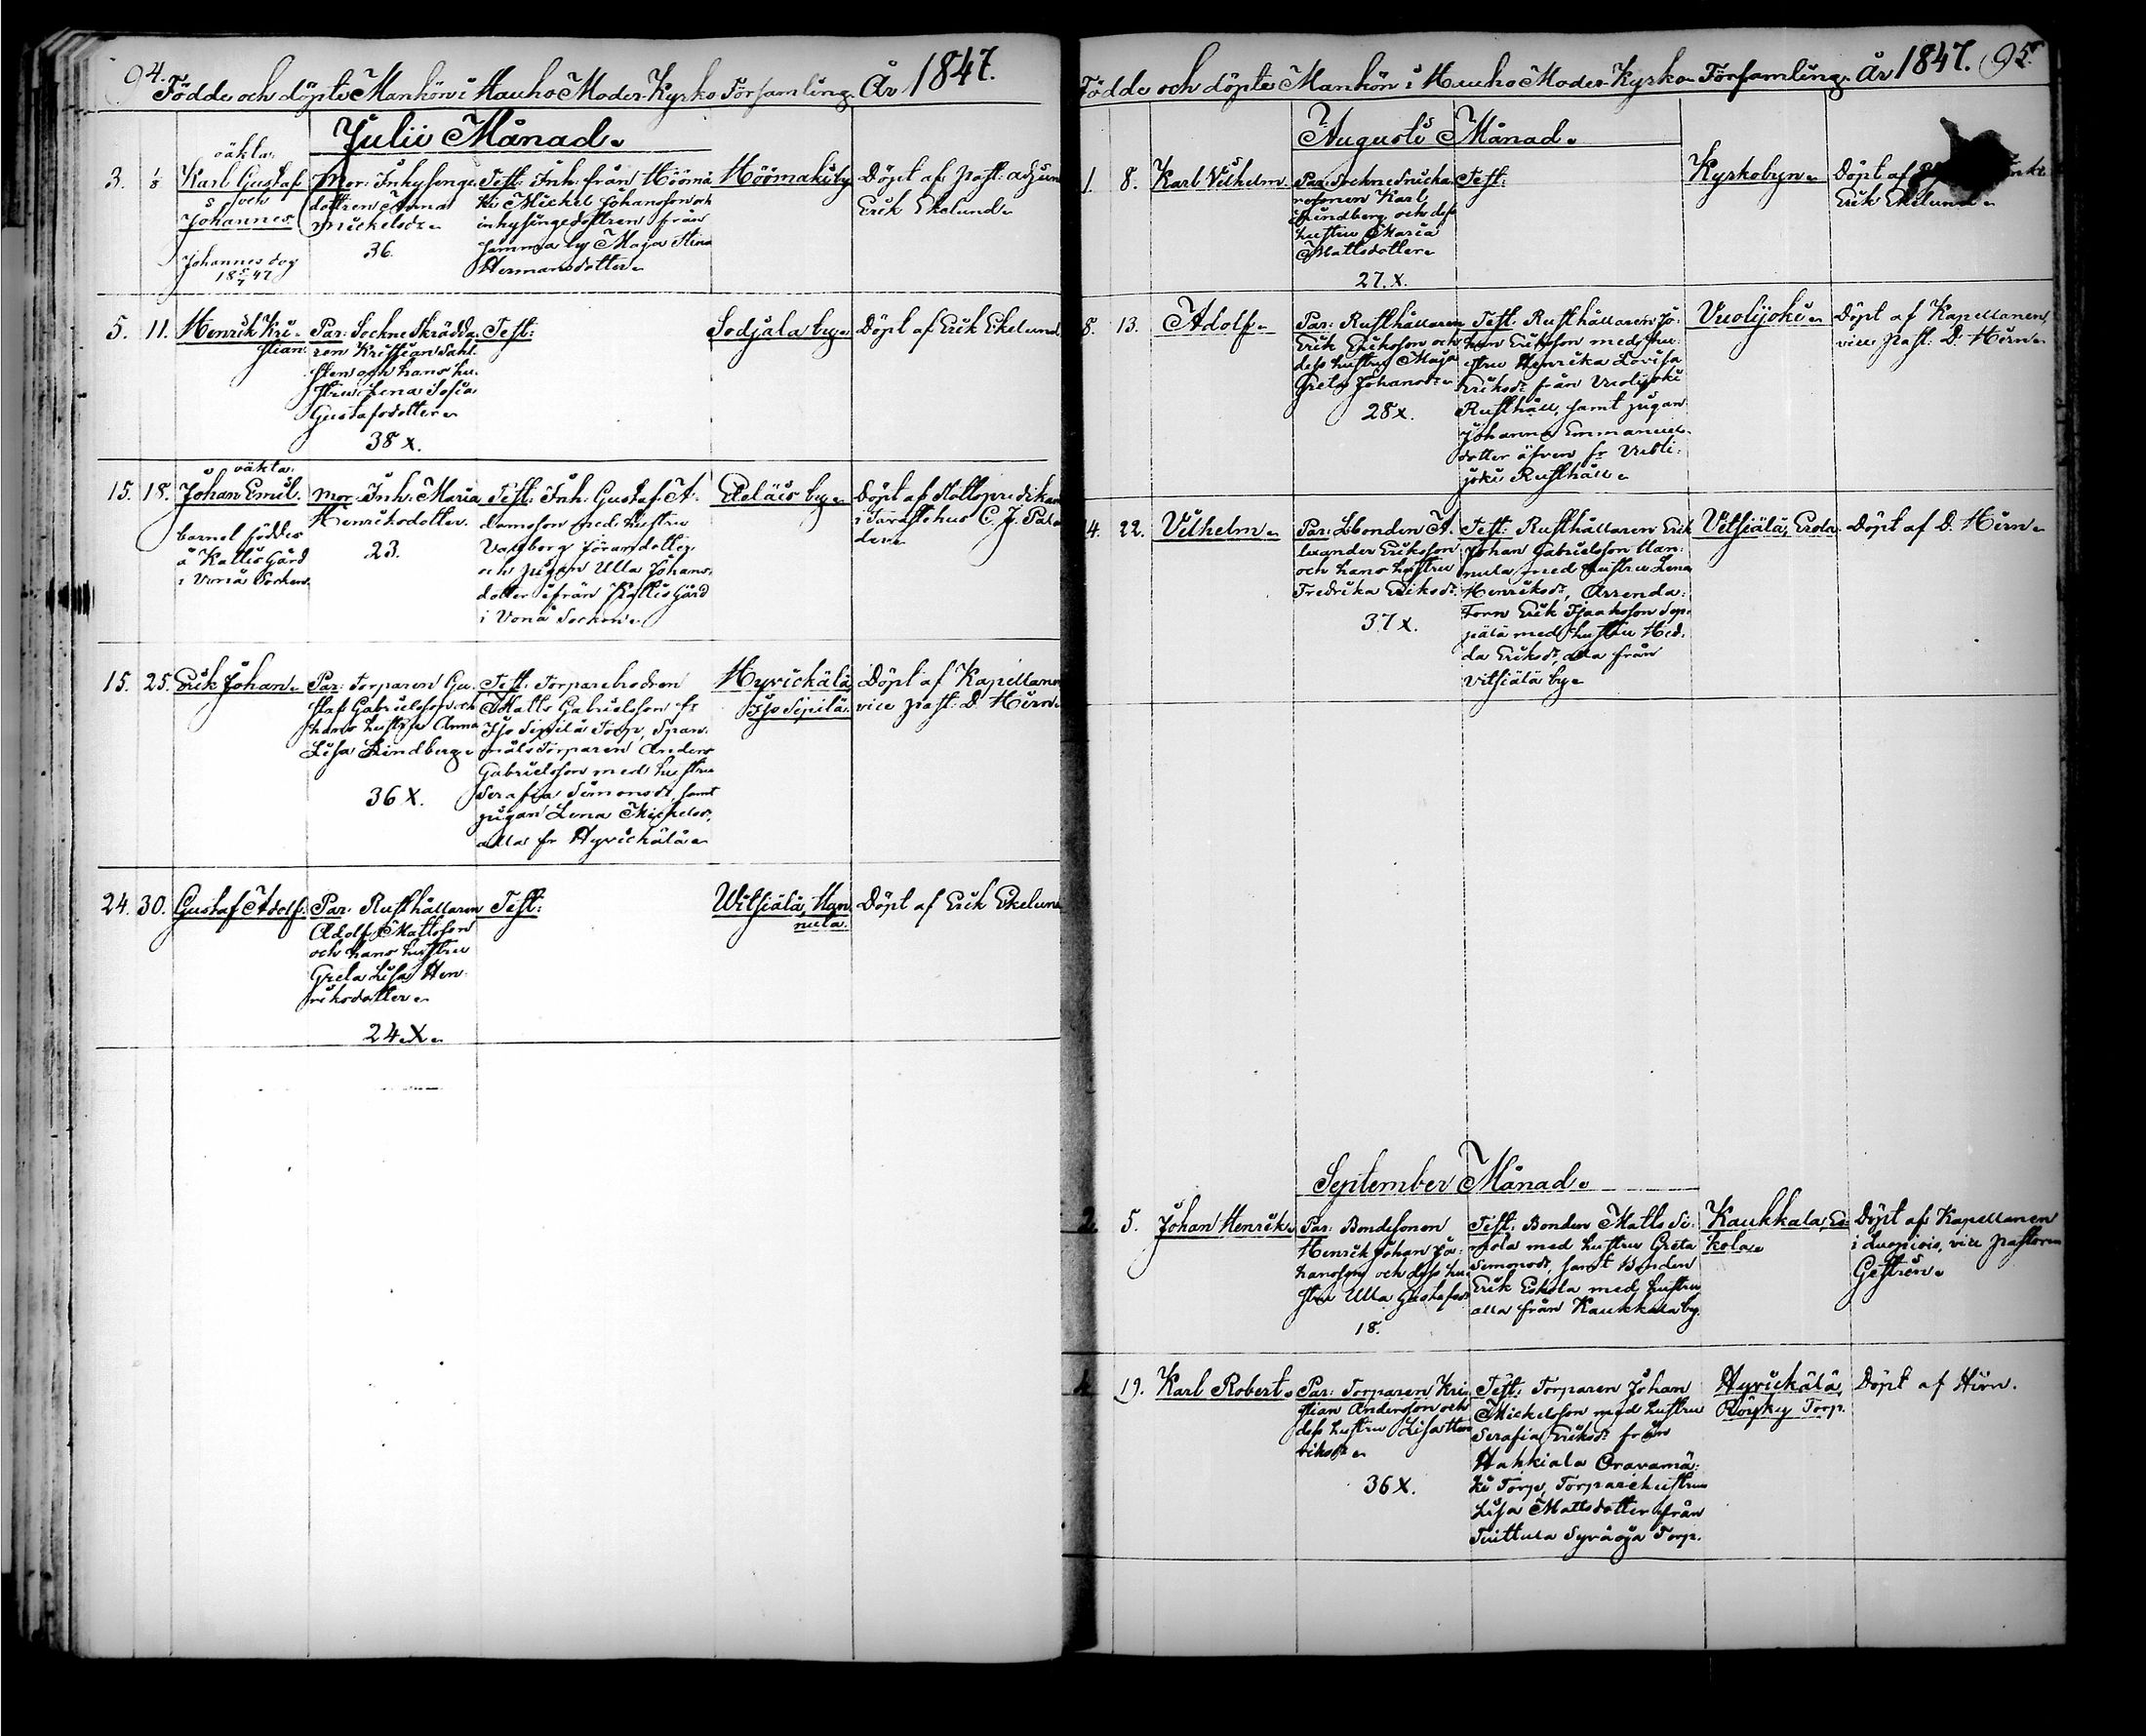 94.
Födde och döpte Mankön i Hauho Moder-Kyrko Församling År 1847.
Julii Månad.
3.
oäkta.
Karl Gustaf
och
Johannes
Johannes dog
18 5/7 47
Mor: Inhysinge
dottren Anna
Mickelsdr.
36.
Test: Inh. från Höömä
ki Mickel Johansson och
inhysingedottren från
samma by Maja Stina
Hermansdotter.
Höömäki by
Döpt af past: adjun
Erik Ekelund.
5.
11.
Henrik Kri-
stian.
Par: Sockne Skrädda
ren Kristian Sahl
sten och hans hu-
stru Lena Sofia
Gustafsdotter.
38 X.
Test:
Sodjala by.
Döpt af Erik Ekelund.
15.
18.
oäkta.
Johan Emil.
barnet föddes
å Kallis Gård
i Vonå Socken.
Mor: Inh. Maria
Henriksdotter.
23.
Test: Inh. Gustaf A-
damsson med hustru
Valborg Göransdotter
och pigan Ulla Johans-
dotter ifrån Kallis Gård
i Vonå Socken.
Eteläis by.
Döpt af
i Tavastehus C. J.
15.
25.
Erik Johan.
Par: Torparen Gu-
staf Gabrielsson och
hans hustru Anna
Lisa Lindberg.
36 X.
Test: Torparebrodren
Matts Gabrielsson fr
Iso Sipilä Torp, Span-
måls Torparen Anders
Gabrielsson med hustru
Serafia Simonsdr samt
pigan Lena Mickelsdr,
alla fr Hyvickälä.
Hyvickälä,
Iso Sipilä.
Döpt af Kapellanen
vice past: D. Hirn.
24.
30.
Gustaf Adolf.
Par: Rusthållaren
Adolf Mattsson
och hans hustru
Greta Lisa Hen-
riksdotter.
24 X.
Test:
Witsiälä, Han-
nula.
Döpt af Erik Ekelund
Födde och döpte Mankön i Hauho Moder-Kyrko Församling År 1847. 95.
Augusti Månad.
1.
8.
Karl Vilhelm.
Par: Sockne
Karl
Lindberg och dess
hustru Maria
Mattsdotter.
27. X.
Test:
Kyrkobyn.
Döpt af
Erik Ekelund.
8.
13.
Adolf.
Par: Rusthållaren
Erik Eriksson och
dess hustru Maja
Greta Johansdr.
28 X.
Test: Rusthållaren Jo-
han Eriksson med hu-
stru Henrika Lovisa
Eriksdr från Vuolijoki
Rusthåll, samt pigan
Johanna Emmanuels-
dotter äfven fr Vuoli-
joki Rusthåll.
Vuolijoki.
Döpt af Kapellanen,
vice past. D. Hirn.
14.
22.
Vilhelm.
Par: Bonden A-
lexander Eriksson
och hans hustru
Fredrika Eriksdr.
37 X.
Test: Rusthållaren Erik
Johan Gabrielsson Han-
nula, med hustru Lena
Henriksdr, Arrenda-
torn Erik Isaaksson Sep-
pälä med hustru Hed-
da Eriksdr, alla från
Vitsiälä by.
Vitsiälä, Erola.
Döpt af D. Hirn.
September Månad.
2.
5.
Johan Henrik.
Par: Bondesonen
Henrik Johan Jo-
hansson och dess hu-
stru Ulla Gustafsdr
18.
Test: Bonden Matts Si-
mola med hustru Greta
Simonsdr, samt Bonden
Erik Eskola med hustru
alla från Kaukkala by.
Kaukkala, Es-
kola.
Döpt af Kapellanen
i Luopiois, vice pastoren
Geströn.
19.
Karl Robert.
Par: Torparen Kri-
stian Andersson och
dess hustru Lisa Hen
riksdr.
36 X.
Test: Torparen Johan
Mickelsson med hustru
Serafia Eriksdr från
Hahkiala Oravamä-
ki Torp, Torparehustrun
Lisa Mattsdotter från
Tuittula Syräoja Torp.
Hyvickälä,
Röyky Torp.
Döpt af Hirn.